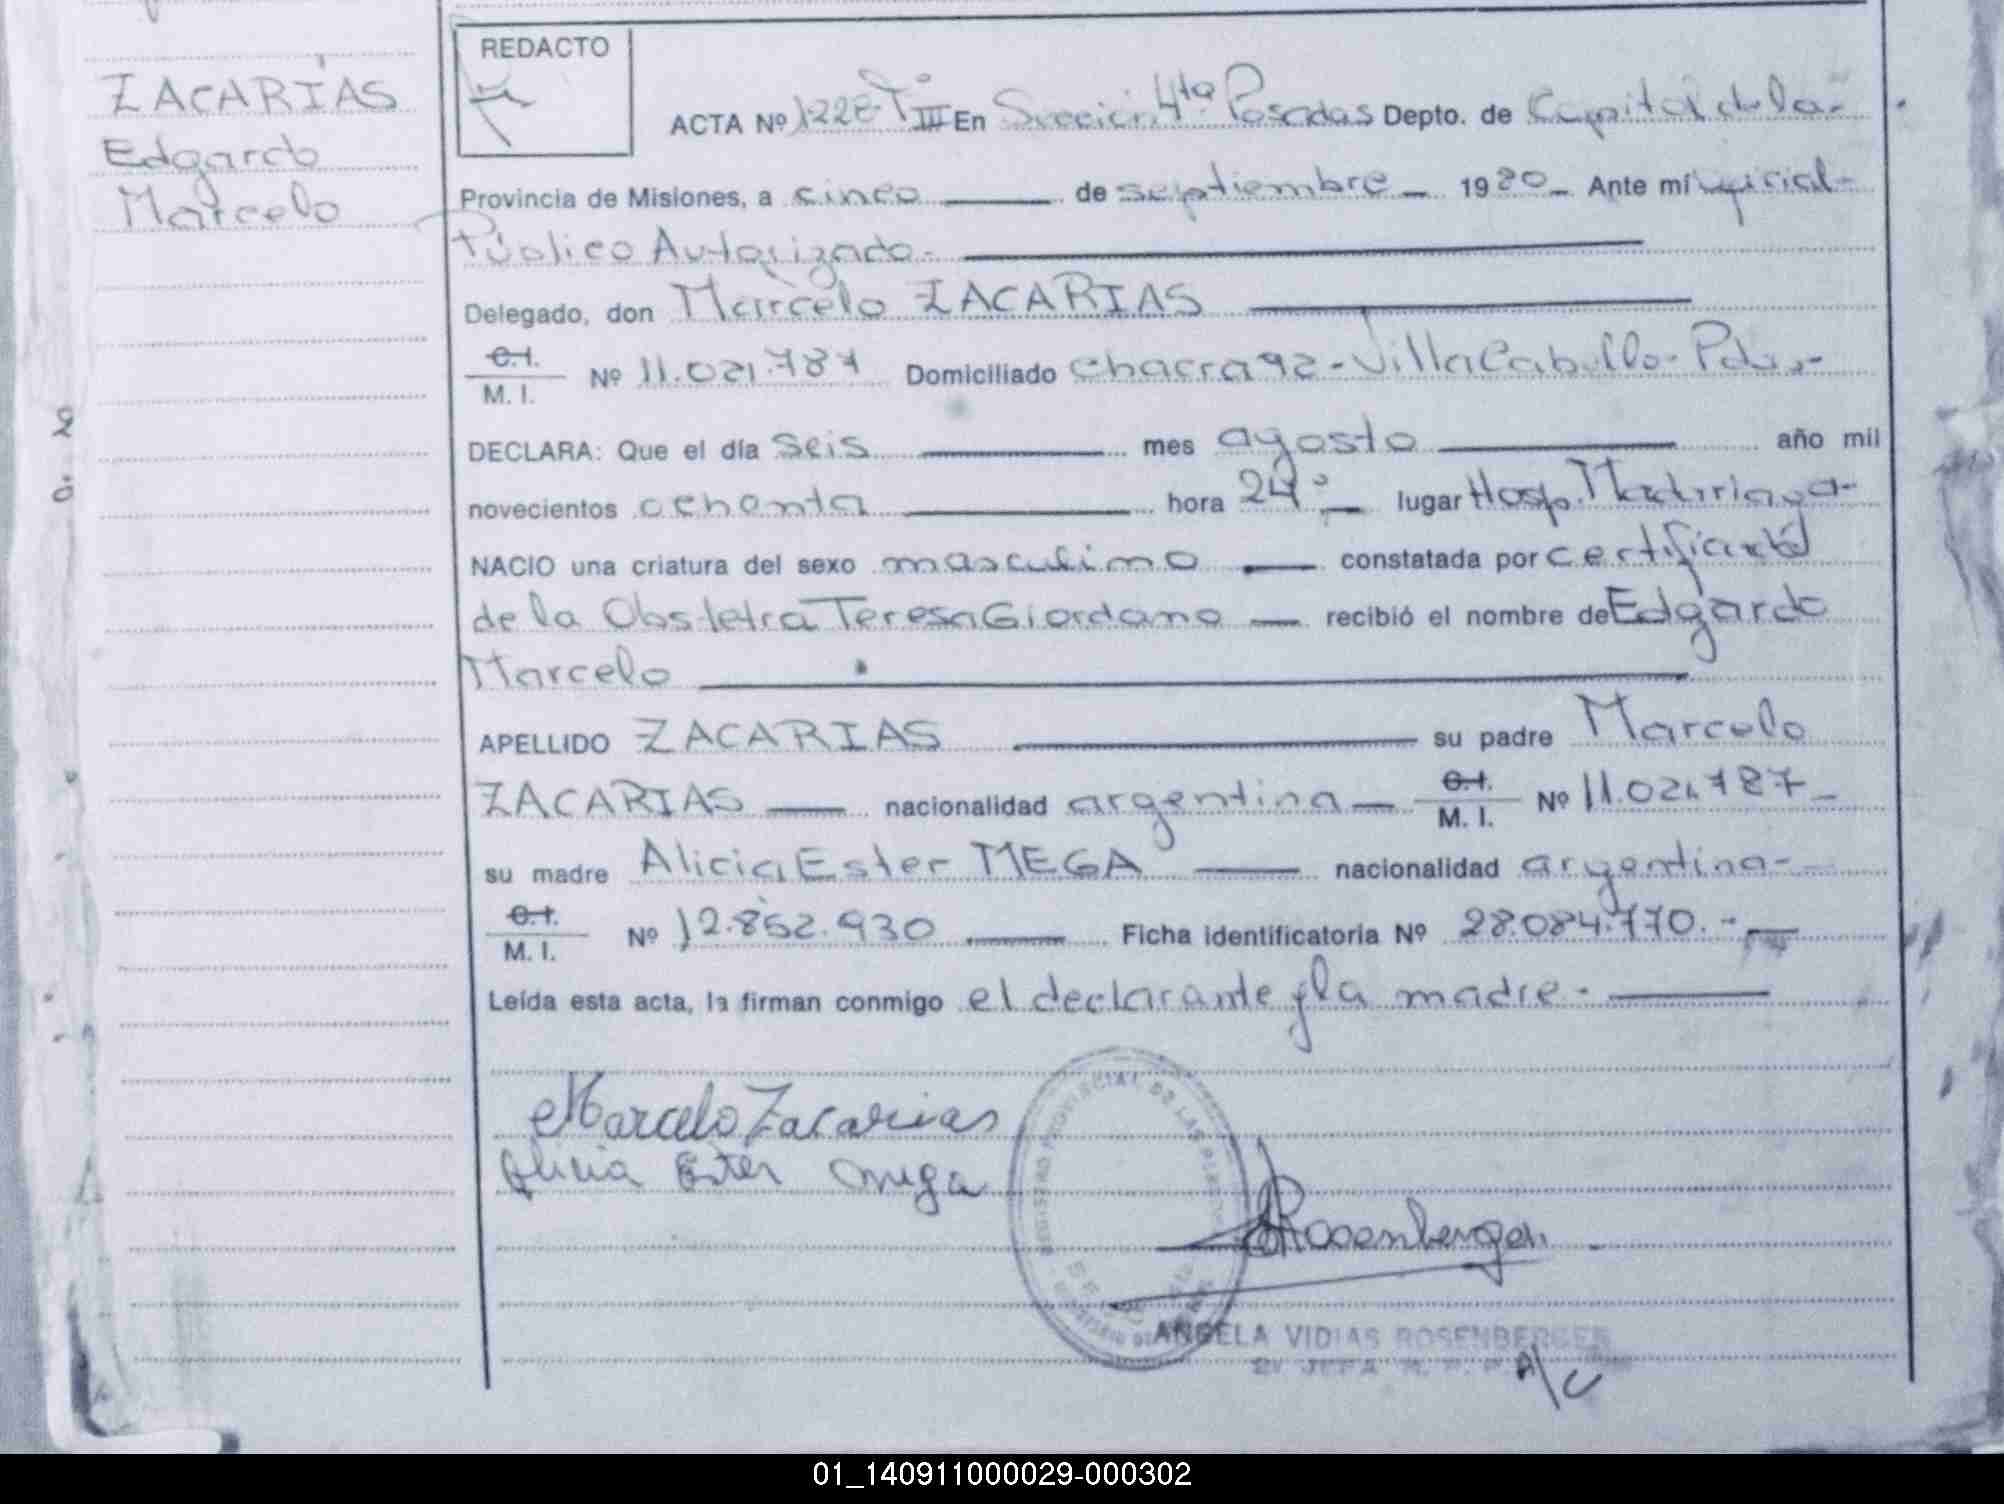 ZACARÍAS
Edgardo
Marcelo
REDACTO
ACTA Nº 1228 T° III En Sección 4ta Posadas Depto. de Capital de la-
Provincia de Misiones, a cinco de septiembre 1980 Ante mí oficial-
Público Autorizado.-
Delegado, don Marcelo ZACARIAS
C.I.
M. I. Nº 11.021.787 Domiciliado Chacra 92-Villa Cabello-Pdas.-
DECLARA: Que el día seis mes agosto año mil
novecientos ochenta hora 24° lugar Hosp. Madariaga-
NACIO una criatura del sexo masculino constatada por certificado
de la Obstetra Teresa Giordano recibió el nombre de Edgardo
Marcelo
APELLIDO ZACARIAS su padre Marcelo
ZACARIAS nacionalidad argentina C.I. M. I. Nº 11.021.787
su madre Alicia Ester MEGA nacionalidad argentina-
C.I.
M. I. Nº 12.852.930 Ficha identificatoria Nº 28.084.770.-
Leída esta acta, la firman conmigo el declarante y la madre.-
Marcelo Zacarias
Alicia Ester Mega
REGISTRO PROVINCIAL DE LAS
Rosenberger
ANGELA VIDIAS ROSENBERGER
2º JEFA R. P. P.
A/C
01_140911000029-000302